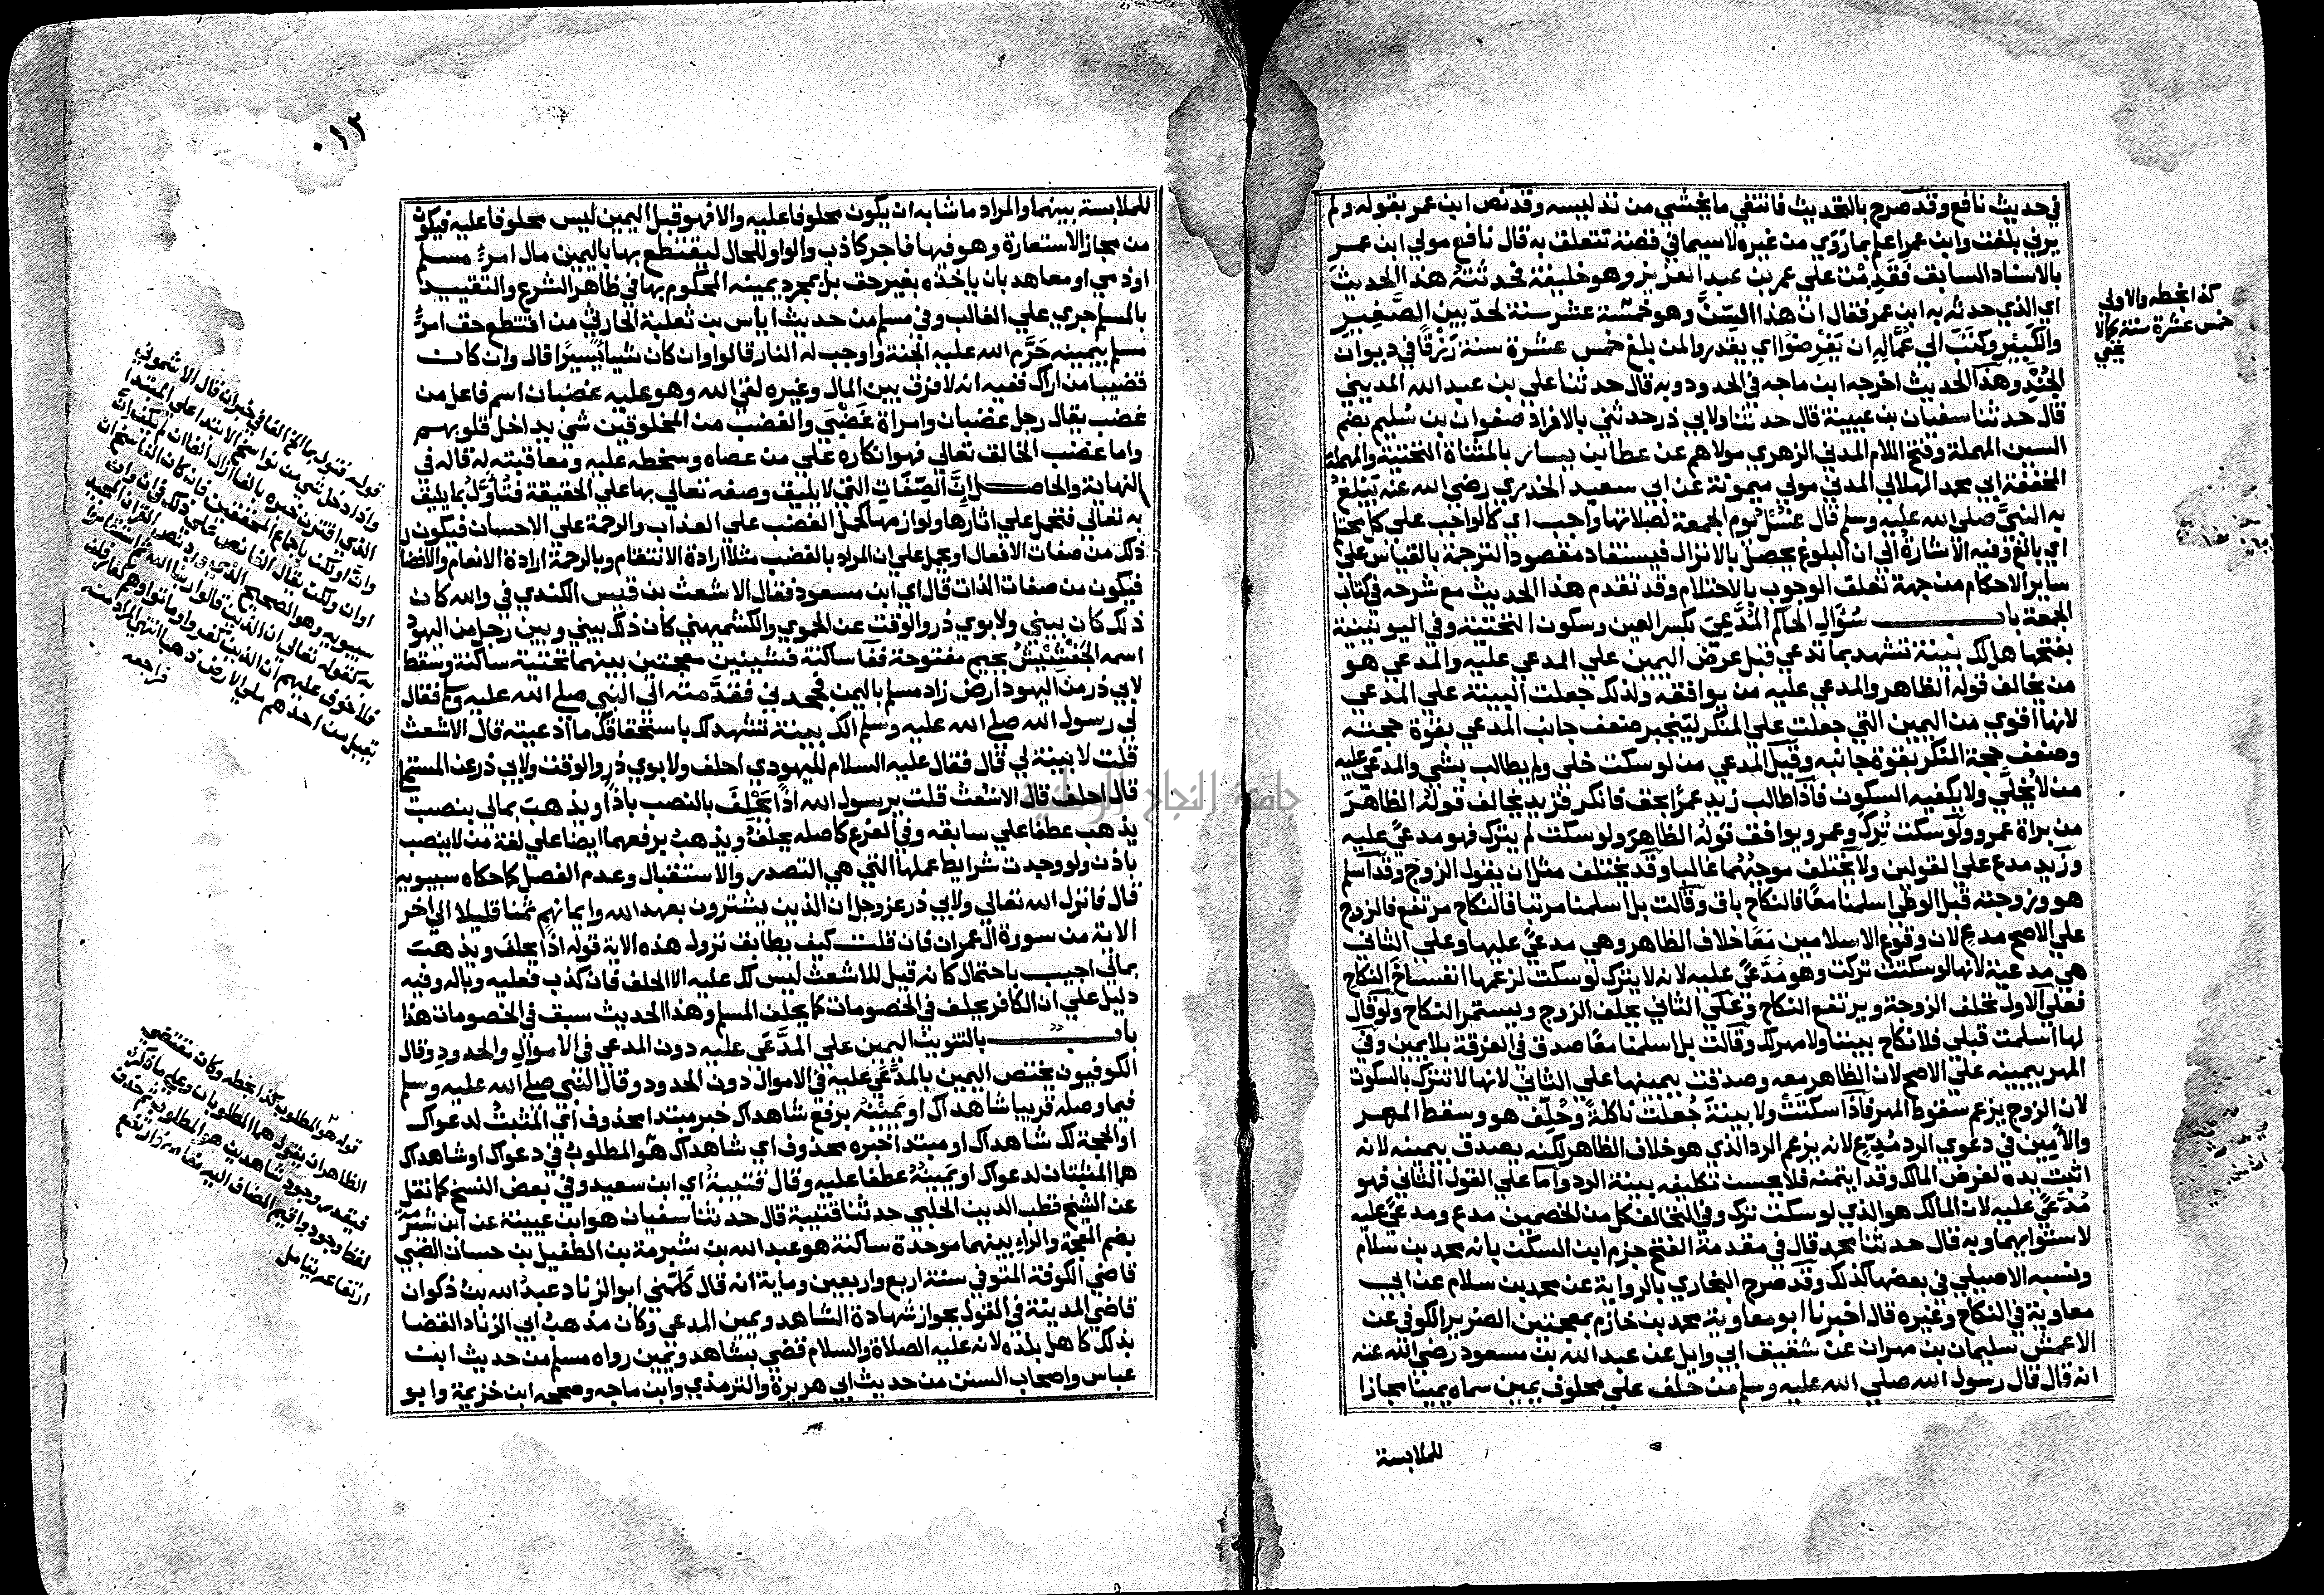 في حديث نافع وقد صرح بالتحديث فانتفي ما يخشي من تدليسه وقد نص ابن عمر بقوله ولم
يرني بلغت وابن عمر اعلم بما روي من غيره لا سيما في قصة تتعلق به قال نافع مولي ابن عمر
بالاسناد السابق فقدمت علي عمر بن عبد العزيز وهو خليفة فحدثته هذا الحديث
اي الذي حدثه به ابن عمر فقال ان هذا السن وهو خمسة عشر سنة لحد بين الصغير
والكبير وكتب الي عماله ان يفرضوا اي يقدروا لمن بلغ خمس عشرة سنة رزقا في ديوان
الجند وهذا الحديث اخرجه ابن ماجه في الحدود وبه قال حدثنا علي بن عبد الله المديني
قال حدثنا سفيان بن عيينة قال حدثنا ولابي ذر حدثني بالافراد صفوان بن سليم بضم
السين المهملة وفتح اللام المدني الزهري مولاهم عن عطا بن يسار بالمثناة التحتية والمهملة
المخففة ابي محمد الهلالي المدني مولي ميمونة عن ابي سعيد الخدري رضي الله عنه يبلغ
به النبي صلي الله عليه وسلم قال غسل يوم الجمعة لصلاتها واجب اي كالواجب علي كل محتلم
اي بالغ وفيه الاشارة الي ان البلوغ يحصل بالانزال فيستفاد مقصود الترجمة بالقياس علي
ساير الاحكام من جهة تعلق الوجوب بالاحتلام وقد تقدم هذا الحديث مع شرحه في كتاب
الجمعة باب سؤال الحاكم المدعي بكسر العين وسكون التحتية وفي اليونينية
بفتحها هل لك بينة تشهد بما تدعي قبل عرض اليمين علي المدعي عليه والمدعي هو
من يخالف قوله الظاهر والمدعي عليه من يوافقه ولذلك جعلت البينة علي المدعي
لانها اقوي من اليمين التي جعلت علي المنكر لينجبر ضعف جانب المدعي بقوة حجته
وضعف حجة المنكر بقوة جانبه وقيل المدعي من لو سكت خلي ولم يطالب بشي والمدعي عليه
من لا يخلي ولا يكفيه السكوت فاذا طالب زيد عمرا بحق فانكر فزيد يخالف قوله الظاهر
من براة عمرو ولو سكت ترك وعمرو يوافق قوله الظاهر ولو سكت لم يترك فهو مدعي عليه
وزيد مدع علي القولين ولا يختلف موجبهما غالبا وقد يختلف مثل ان يقول الزوج وقد اسلم
هو وزوجته قبل الوطي اسلمنا معا فالنكاح باق وقالت بل اسلمنا مرتبا فالنكاح مرتفع فالزوج
علي الاصح مدع لان وقوع الاسلامين معا خلاف الظاهر وهي مدعي عليها وعلي الثاني
هي مدعية لانها لو سكتت تركت وهو مدعي عليه لانه لا يترك لو سكت لزعمها انفساخ النكاح
فعلي الاول تحلف الزوجة ويرتفع النكاح وعلي الثاني يحلف الزوج ويستمر النكاح ولو قال
لها اسلمت قبلي فلا نكاح بيننا ولا مهر لك وقالت بل اسلمنا معا صدق في الفرقة بلا يمين وفي
المهر بيمينه علي الاصح لان الظاهر معه وصدقت بيمينها علي الثاني لانها لا تترك بالسكوت
لان الزوج يزعم سقوط المهر فاذا سكتت ولا بينة جعلت ناكلة وحلف هو وسقط المهر
والامين في دعوي الرد مدع لانه يزعم الرد الذي هو خلاف الظاهر لكنه يصدق بيمينه لانه
اثبت يده لغرض المالك وقد ايتمنه فلا يحسن تكليفه ببينة الرد واما علي القول الثاني فهو
مدعي عليه لان المالك هو الذي لو سكت ترك وفي التحالف كل من الخصمين مدع ومدعي عليه
لاستوايهما وبه قال حدثنا محمد قال في مقدمة الفتح جزم ابن السكن بانه محمد بن سلام
ونسبه الاصيلي في بعضها كذلك وقد صرح البخاري بالرواية عن محمد بن سلام عن ابي
معاوية في النكاح وغيره قال اخبرنا ابو معاوية محمد بن خازم بمعجمتين الضرير الكوفي عن
الاعمش سليمان بن مهران عن شقيق ابي وايل عن عبد الله بن مسعود رضي الله عنه
انه قال قال رسول الله صلي الله عليه وسلم من حلف علي محلوف يمين سماه يمينا مجازا
للملابسة
كذا بخطه والاولي
خمس عشرة سنة كما لا
يخفي
٠١٢
للملابسة بينهما والمراد ما شابه ان يكون محلوفا عليه والا فهو قبل اليمين ليس محلوفا عليه فيكون
من مجاز الاستعارة وهو فيها فاجر كاذب والواو للحال ليقتطع بها باليمين مال امرئ مسلم
او ذمي او معاهد بان ياخذه بغير حق بل بمجرد يمينه المحكوم بها في ظاهر الشرع والتقييد
بالمسلم جري علي الغالب وفي مسلم من حديث اياس بن ثعلبة الحارثي من اقتطع حق امرئ
مسلم بيمينه حرم الله عليه الجنة واوجب له النار قالوا وان كان شيا يسيرا قال وان كان
قضيبا من اراك ففيه انه لا فرق بين المال وغيره لقي الله وهو عليه غضبان اسم فاعل من
غضب يقال رجل غضبان وامراة غضبي والغضب من المخلوقين شي يداخل قلوبهم
واما غضب الخالق تعالي فهو انكاره علي من عصاه وسخطه عليه ومعاقبته له قاله في
النهاية والحاصل ان الصفات التي لا يليق وصفه تعالي بها علي الحقيقة فتاول بما يليق
به تعالي فتحمل علي اثارها ولوازمها كحمل الغضب علي العذاب والرحمة علي الاحسان فيكون
ذلك من صفات الافعال او يحمل علي ان المراد بالغضب مثلا ارادة الانتقام وبالرحمة ارادة الانعام والافضال
فيكون من صفات الذات قال اي ابن مسعود فقال الاشعث بن قيس الكندي في والله كان
ذلك كان بيني ولابوي ذر والوقت عن الحموي والكشميهني كان ذلك بيني وبين رجل من اليهود
اسمه الجفشيش بجيم مفتوحة ففا ساكنة فشينين معجمتين بينهما تحتية ساكنة وسقط
لابي ذر من اليهود ارض زاد مسلم باليمن فجحدني فقدمته الي النبي صلي الله عليه وسلم فقال
لي رسول الله صلي الله عليه وسلم الك بينة تشهد لك باستحقاقك ما ادعيته قال الاشعث
قلت لا بينة لي قال فقال عليه السلام لليهودي احلف ولابوي ذر والوقت ولابي ذر عن المستملي
قال احلف قال الاشعث قلت يرسول الله اذا يحلف بالنصب باذا ويذهب بمالي بنصب
يذهب عطفا علي سابقه وفي الفرع كاصله يحلف ويذهب برفعهما ايضا علي لغة من لا ينصب
باذن ولو وجدت شرايط عملها التي هي التصدر والاستقبال وعدم الفصل كما حكاه سيبويه
قال فانزل الله تعالي ولابي ذر عز وجل ان الذين يشترون بعهد الله وايمانهم ثمنا قليلا الي اخر
الاية من سورة ال عمران فان قلت كيف يطابق نزول هذه الاية قوله اذا يحلف ويذهب
بمالي اجيب باحتمال كانه قيل للاشعث ليس لك عليه الا الحلف فان كذب فعليه وباله وفيه
دليل علي ان الكافر يحلف في الخصومات كما يحلف المسلم وهذا الحديث سبق في الخصومات هذا
باب بالتنوين اليمين علي المدعي عليه دون المدعي في الاموال والحدود وقال
الكوفيون يختص اليمين بالمدعي عليه في الاموال دون الحدود وقال النبي صلي الله عليه وسلم
فيما وصله قريبا شاهداك او يمينه برفع شاهداك خبر مبتدا محذوف اي المثبت لدعواك
او الحجة لك شاهداك او مبتدا خبره محذوف اي شاهداك هو المطلوب في دعواك او شاهداك
هما المثبتان لدعواك او يمينه عطفا عليه وقال قتيبة اي ابن سعيد وفي بعض النسخ كما نقل
عن الشيخ قطب الدين الحلبي حدثنا قتيبة قال حدثنا سفيان هو ابن عيينة عن ابن شبرمة
بضم المعجمة والراء بينهما موحدة ساكنة هو عبد الله بن شبرمة بن الطفيل بن حسان الضبي
قاضي الكوفة المتوفي سنة اربع واربعين وماية انه قال كلمني ابو الزناد عبد الله بن ذكوان
قاضي المدينة في القول بجواز شهادة الشاهد ويمين المدعي وكان مذهب ابي الزناد القضا
بذلك كاهل بلده لانه عليه الصلاة والسلام قضي بشاهد ويمين رواه مسلم من حديث ابن
عباس واصحاب السنن من حديث ابي هريرة والترمذي وابن ماجه وصححه ابن خزيمة وابو
قوله فتاول بما الخ الفا في خبر ان قال الاشموني
واذا دخل شي من نواسخ الابتدا علي المبتدا
الذي اقترن خبره بالفا ازال الفا ان لم يكن ان
وان ولكن باجماع المحققين فان كان الناسخ ان
او ان ولكن جاز بقا الفا نص علي ذلك في ان وان
سيبويه وهو الصحيح الذي ورد نص القران المجيد
به كقوله تعالي ان الذين قالوا ربنا الله ثم استقاموا
فلا خوف عليهم ان الذين كفروا وماتوا وهم كفار فلن
يقبل من احدهم ملي الارض ذهبا انتهي المراد منه
فراجعه
قوله هو المطلوب كذا بخطه وكان مقتضي
الظاهر ان يقول هما المطلوبان وعلي ما قاله
فيقدر وجود شاهدين هو المطلوب ثم حذف
لفظ وجود واقيم المضاف اليه مقامه فارتفع
ارتفاعه تامل
جامعة النجاح الوطنية